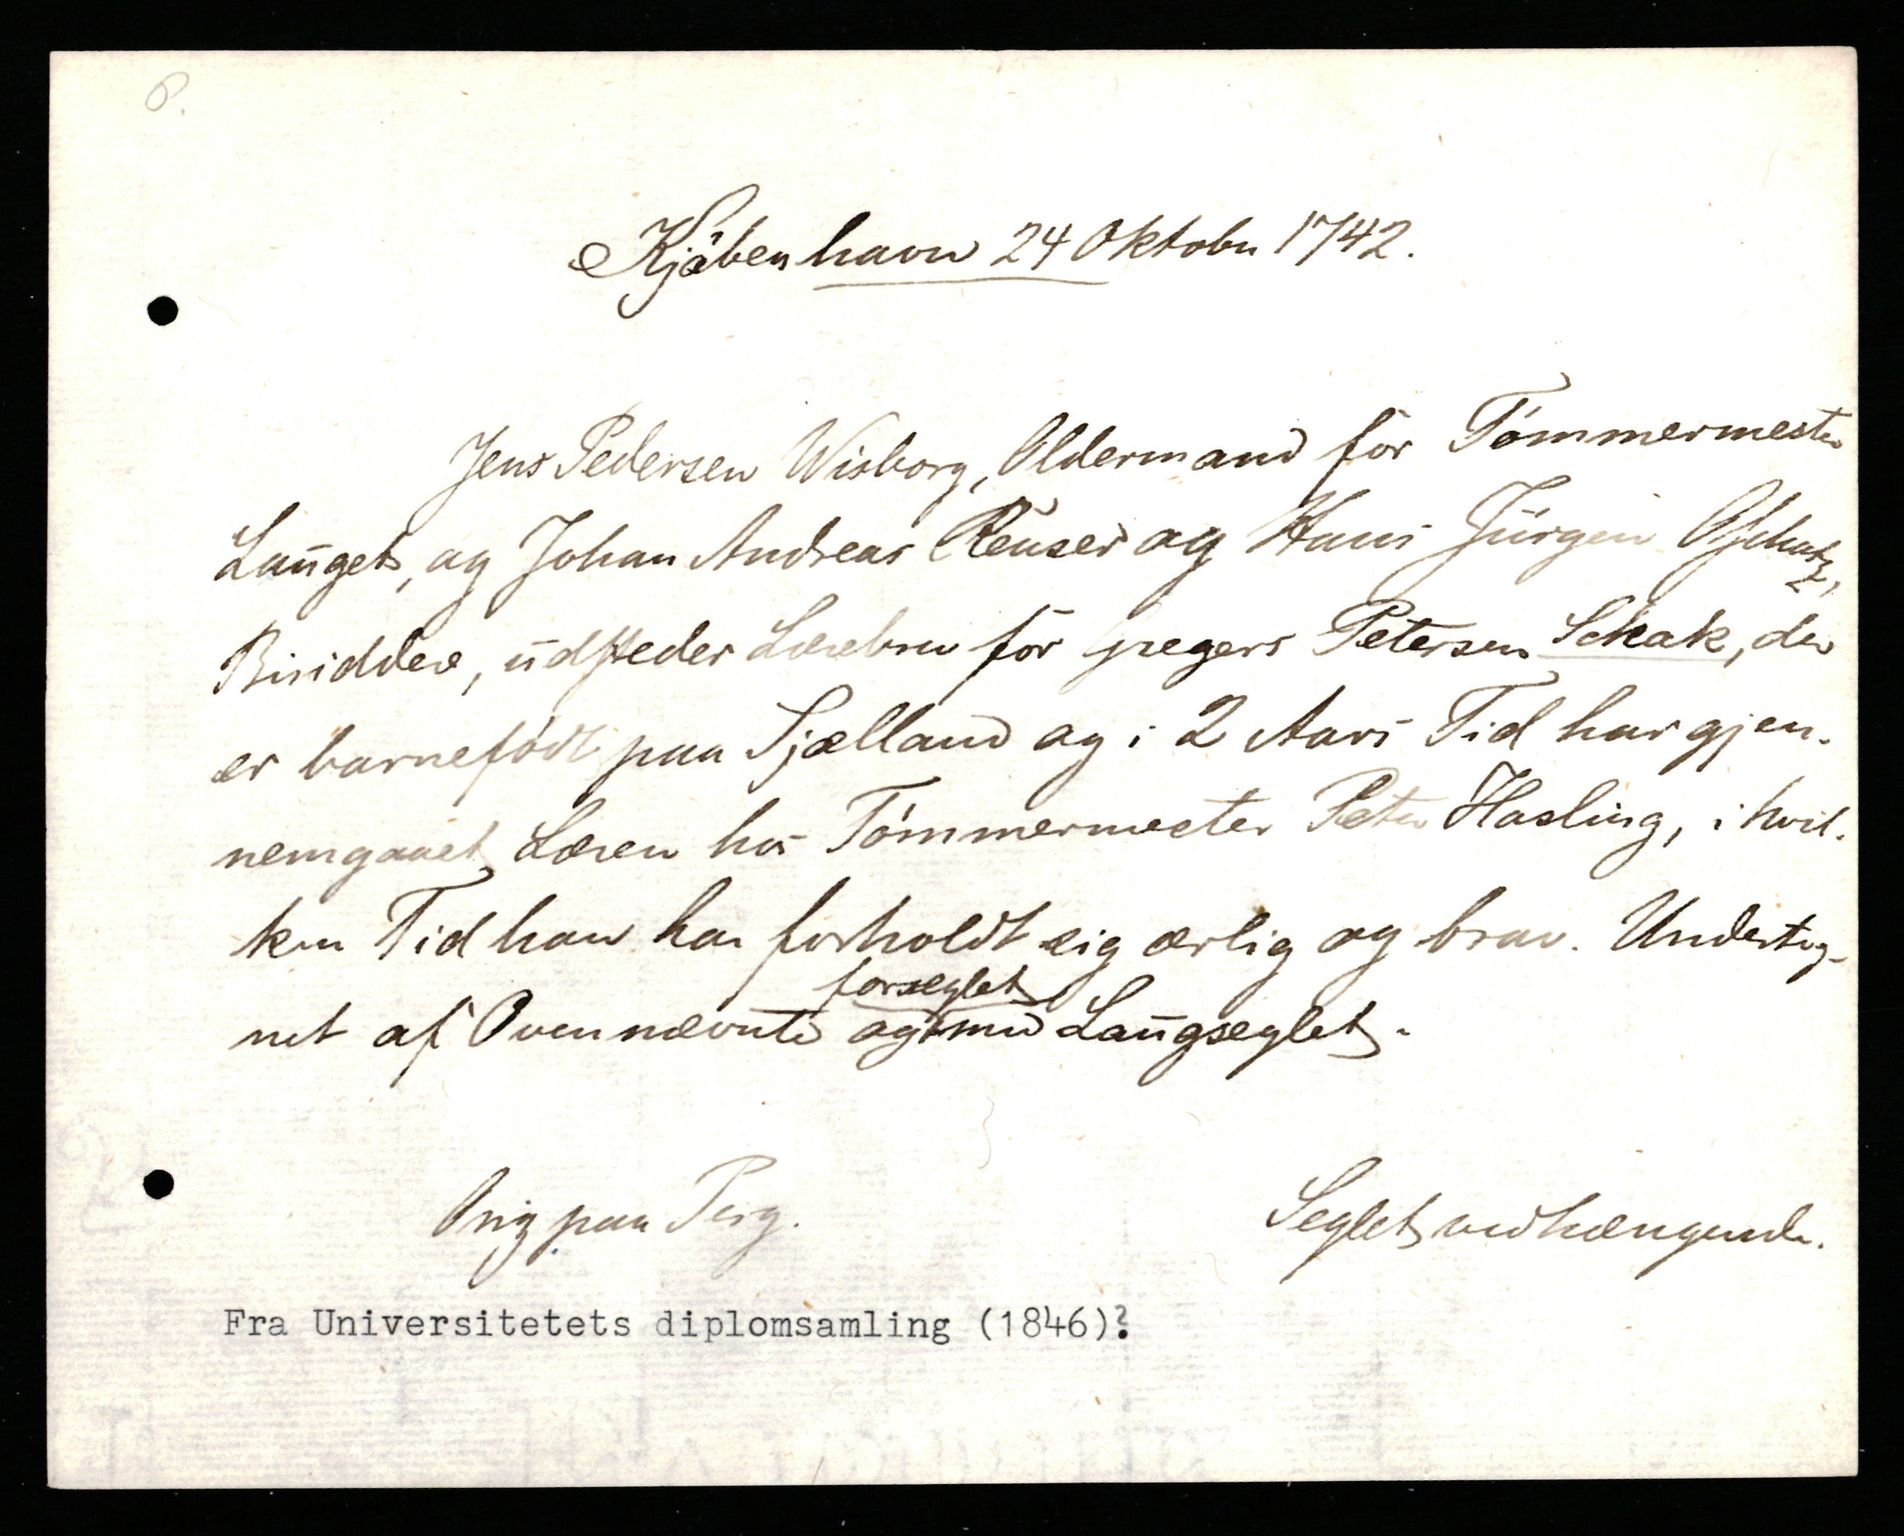 6.
Kjøbenhavn 24 Oktober 1742.
Jens Pedersen Wisborg, Oldermand for Tømmermester
Lauget, og Johan Andreas Reuser og Hans Jürgen
Bisiddere, udsteder Lærebrev for Gregers Petersen Schak, der
er barnefødt paa Sjælland og i 2 Aars Tid har gjen-
nemgaaet Læren hos Tømmermester Peter Hasling, i hvil-
ken Tid han har forholdt sig ærlig og brav. Underteg-
forseglet
net af Ovennævnte og med Laugseglet.
Orig paa Perg.
Seglet vedhængende.
Fra Universitetets diplomsamling (1846)?